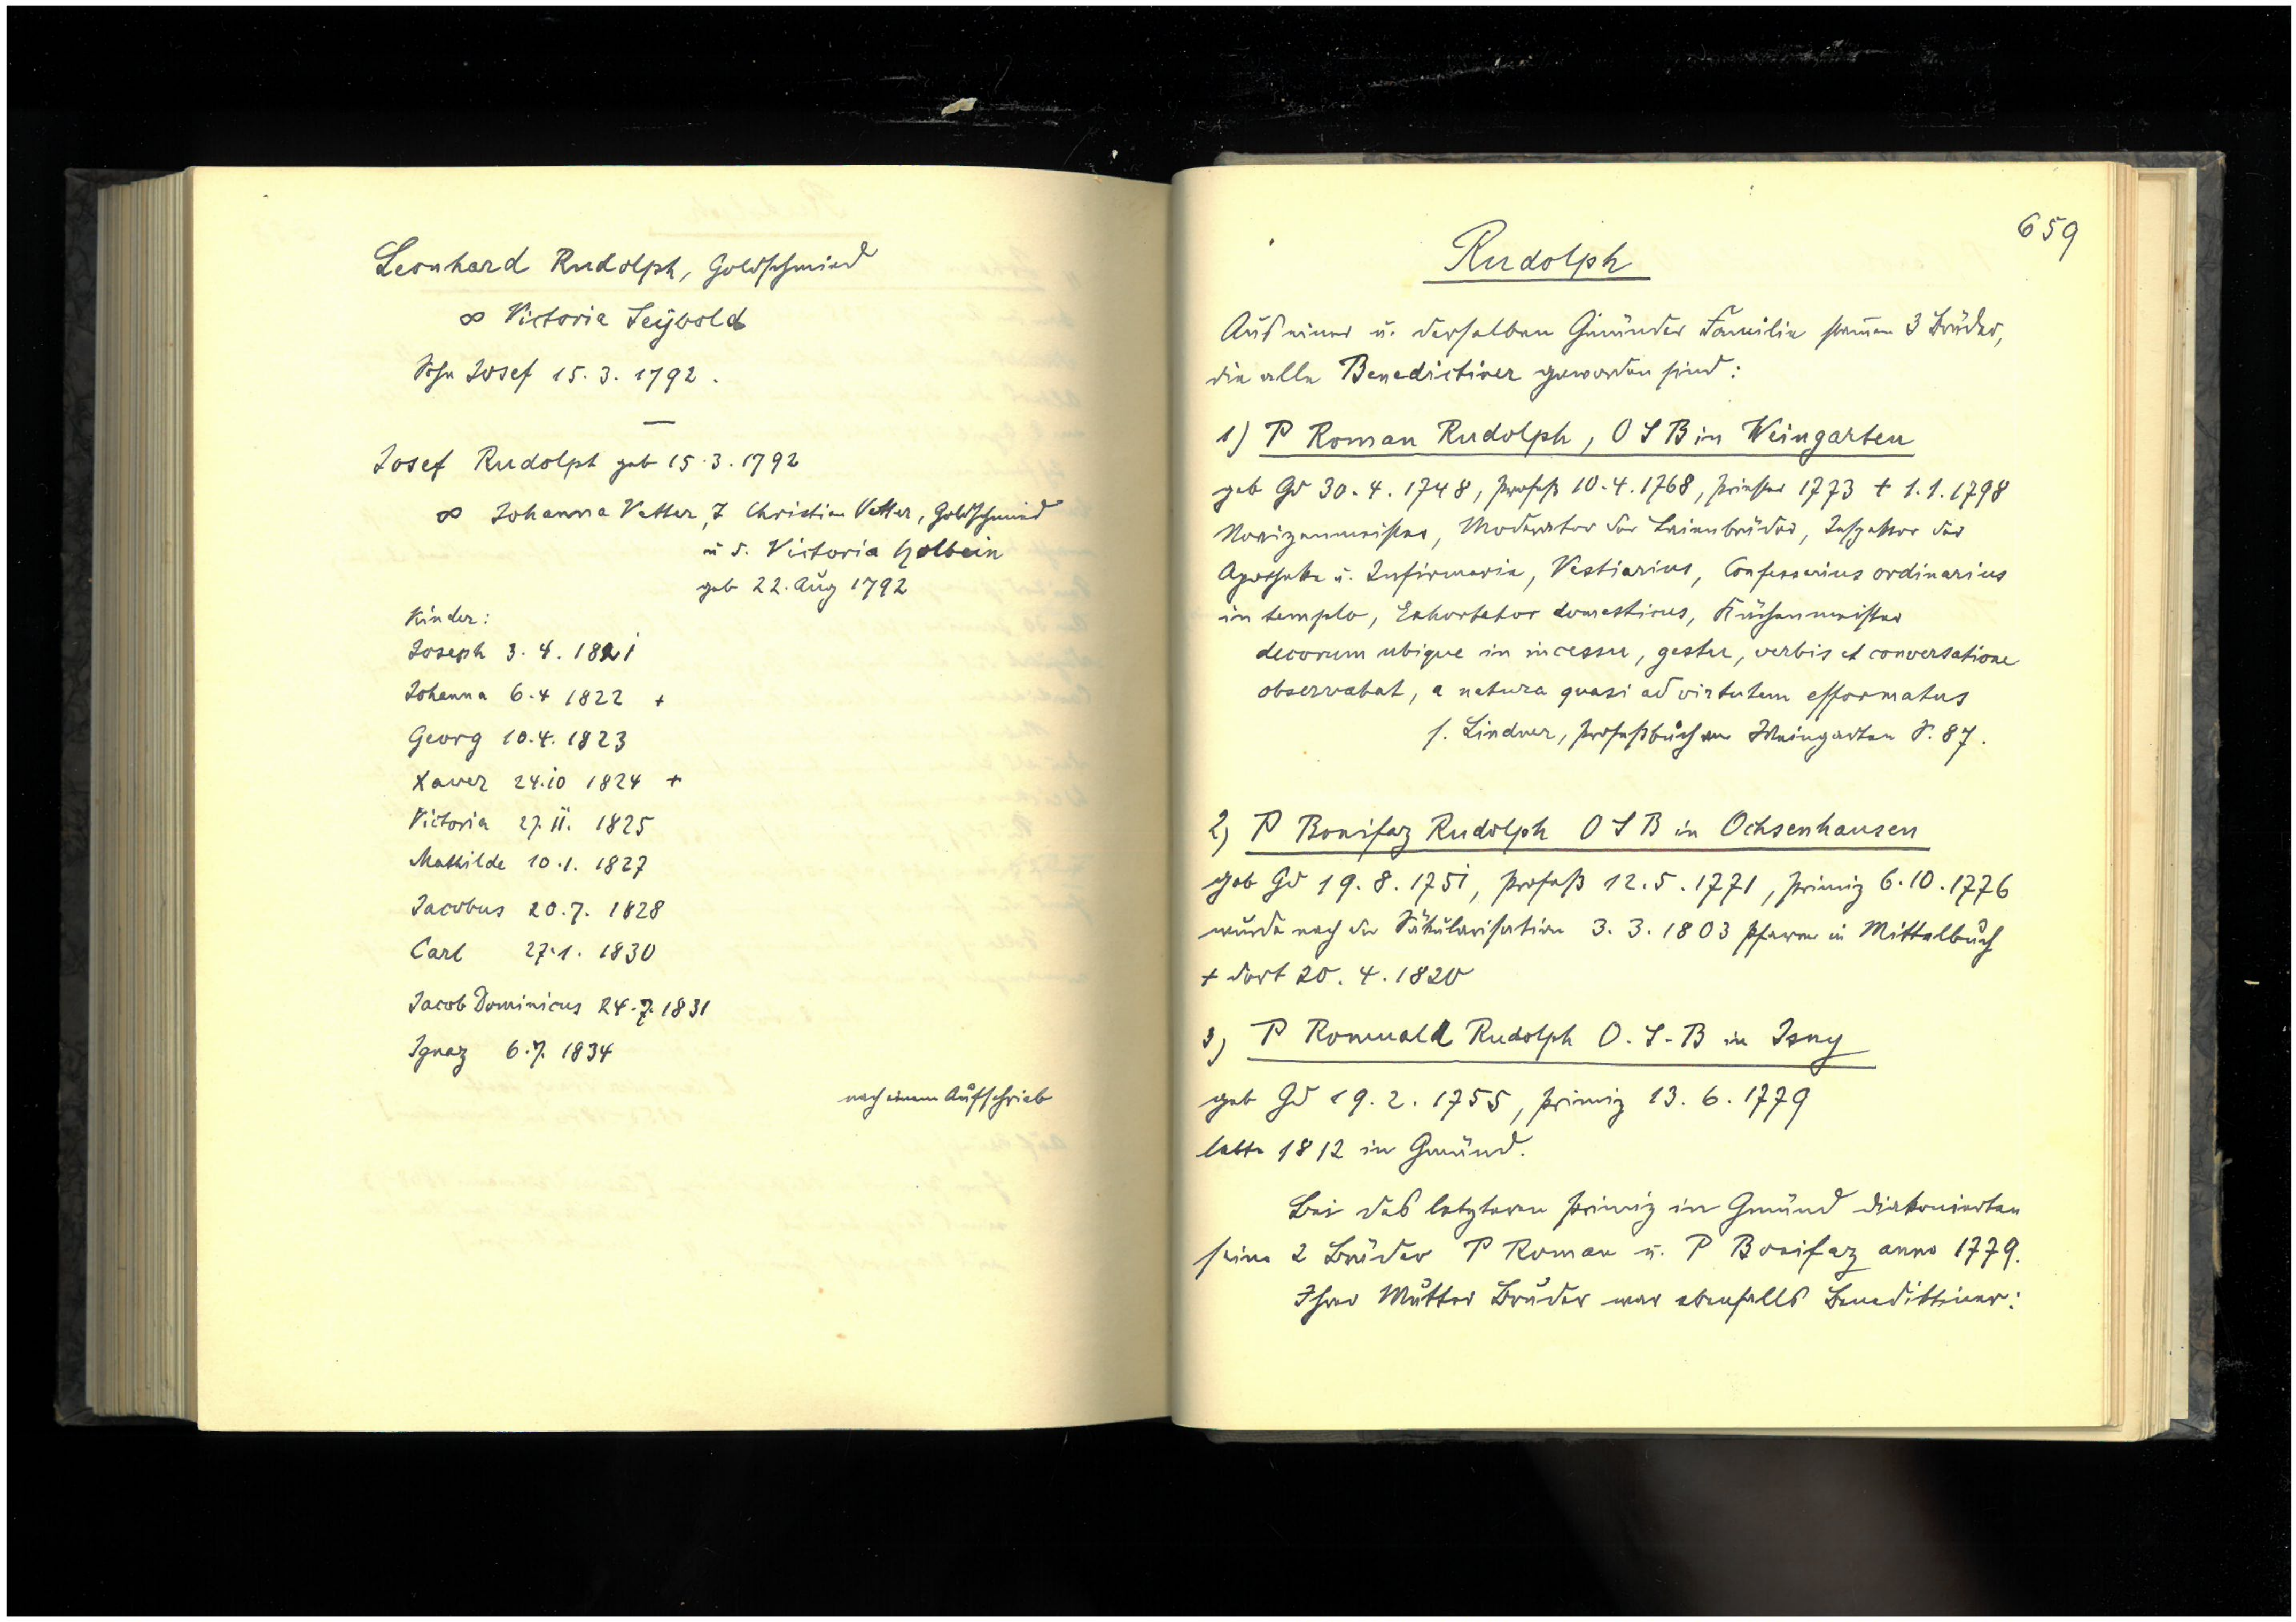 Leonhard Rudolph, Goldschmied
∞ Victoria Seÿbold
Sohn Josef 15.3.1792.
—
Josef Rudolph geb 15.3.1792
∞ Johanna Vetter, T Christian Vetter, Goldschmied
u d. Victoria Holbein
geb 22. Aug 1792
Kinder:
Joseph 3.4.1821
Johanna 6.4 1822 +
Georg 10.4.1823
Xaver 24.10 1824 +
Victoria 27.11. 1825
Mathilde 10.1. 1827
Jacobus 20.7. 1828
Carl 27.1. 1830
Jacob Dominicus 24.7.1831
Ignaz 6.7. 1834
nach einem Aufschrieb
659
Rudolph
Aus einer u. derselben Gmünder Familie stam̄en 3 Brüder,
die alle Benedictiner geworden sind:
1) P Roman Rudolph, O S B in Weingarten
geb Gd 30.4.1748, Profeß 10.4.1768, Priester 1773 + 1.1.1798
Novizenmeister, Moderator der Laienbrüder, Inspektor der
Apotheke u. Infirmarie, Vestiarius, Confessarius ordinarius
in templo, Exhortator domesticus, Küchenmeister
decorum ubique in incessu, gestu, verbis et conversatione
observabat, a natura quasi ad virtutem efformatus
s. Lindner, Profeßbuch von Weingarten S. 87.
2) P Bonifaz Rudolph O S B in Ochsenhausen
geb Gd 19.8.1751, Profeß 12.5.1771, Primiz 6.10.1776
wurde nach der Säkularisation 3.3.1803 Pfarrer in Mittelbuch
+ dort 20.4.1820
3) P Romuald Rudolph O.S.B in Isny
geb Gd 19.2.1755, Primiz 13.6.1779
lebte 1812 in Gmünd.
Bei des letzteren Primiz in Gmünd diakonierten
seine 2 Brüder P Roman u. P Bonifaz anno 1779.
Ihrer Mutter Bruder war ebenfalls Benediktiner: